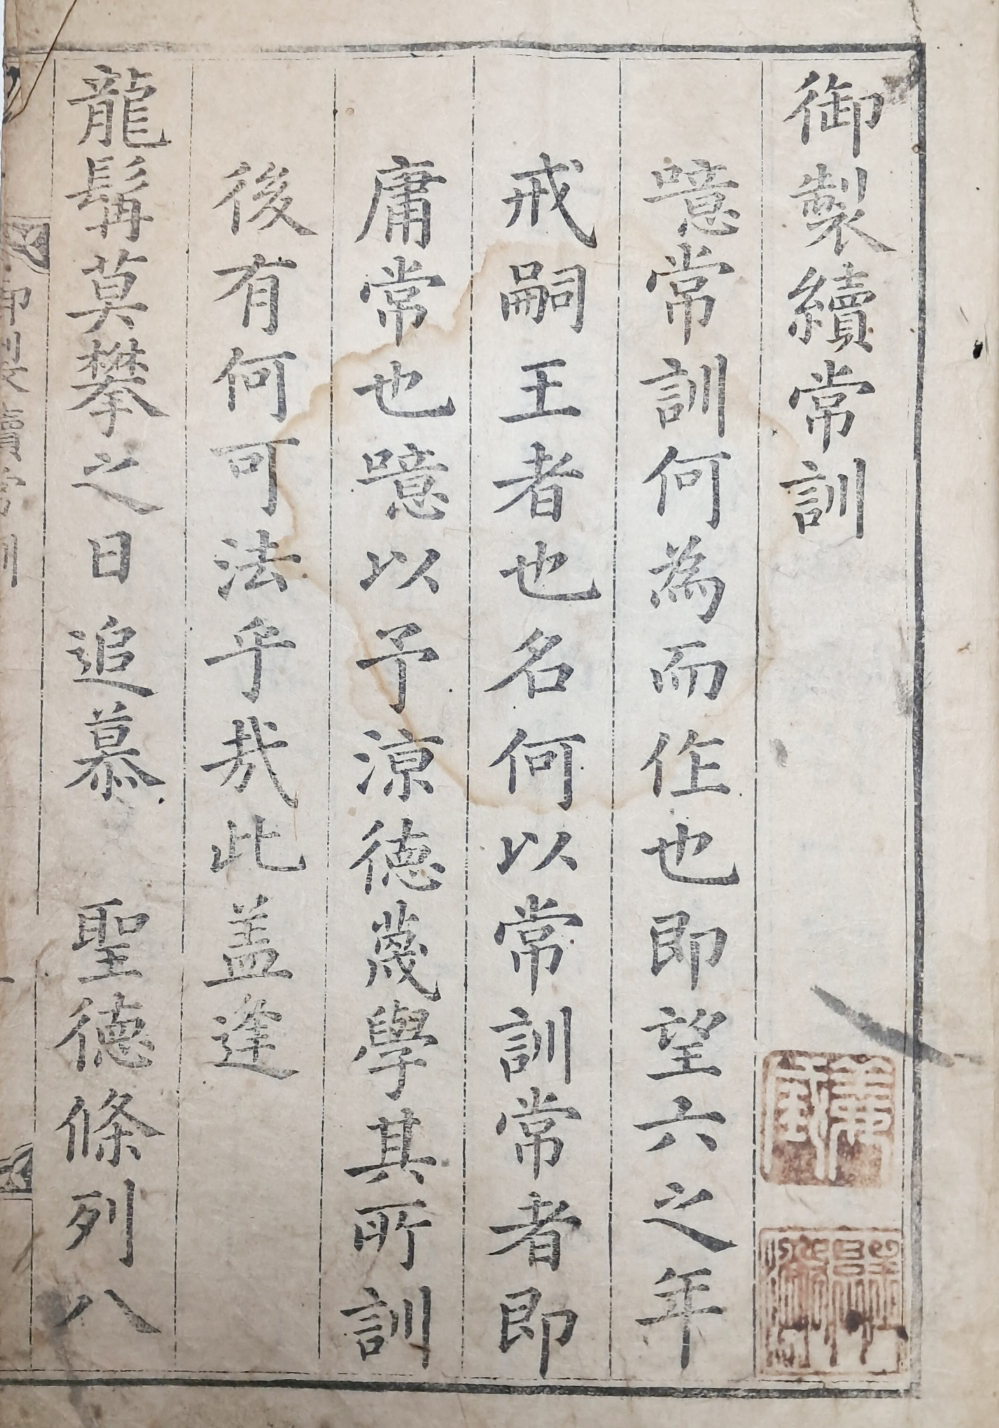 御製續常訓
噫常訓何為而作也即望六之年
戒嗣王者也名何以常訓常者即
庸常也噫以予涼德蔑學其所訓
後有何可法乎㢤此盖逢
龍髯莫攀之日追慕 聖德條列八
御製續常訓